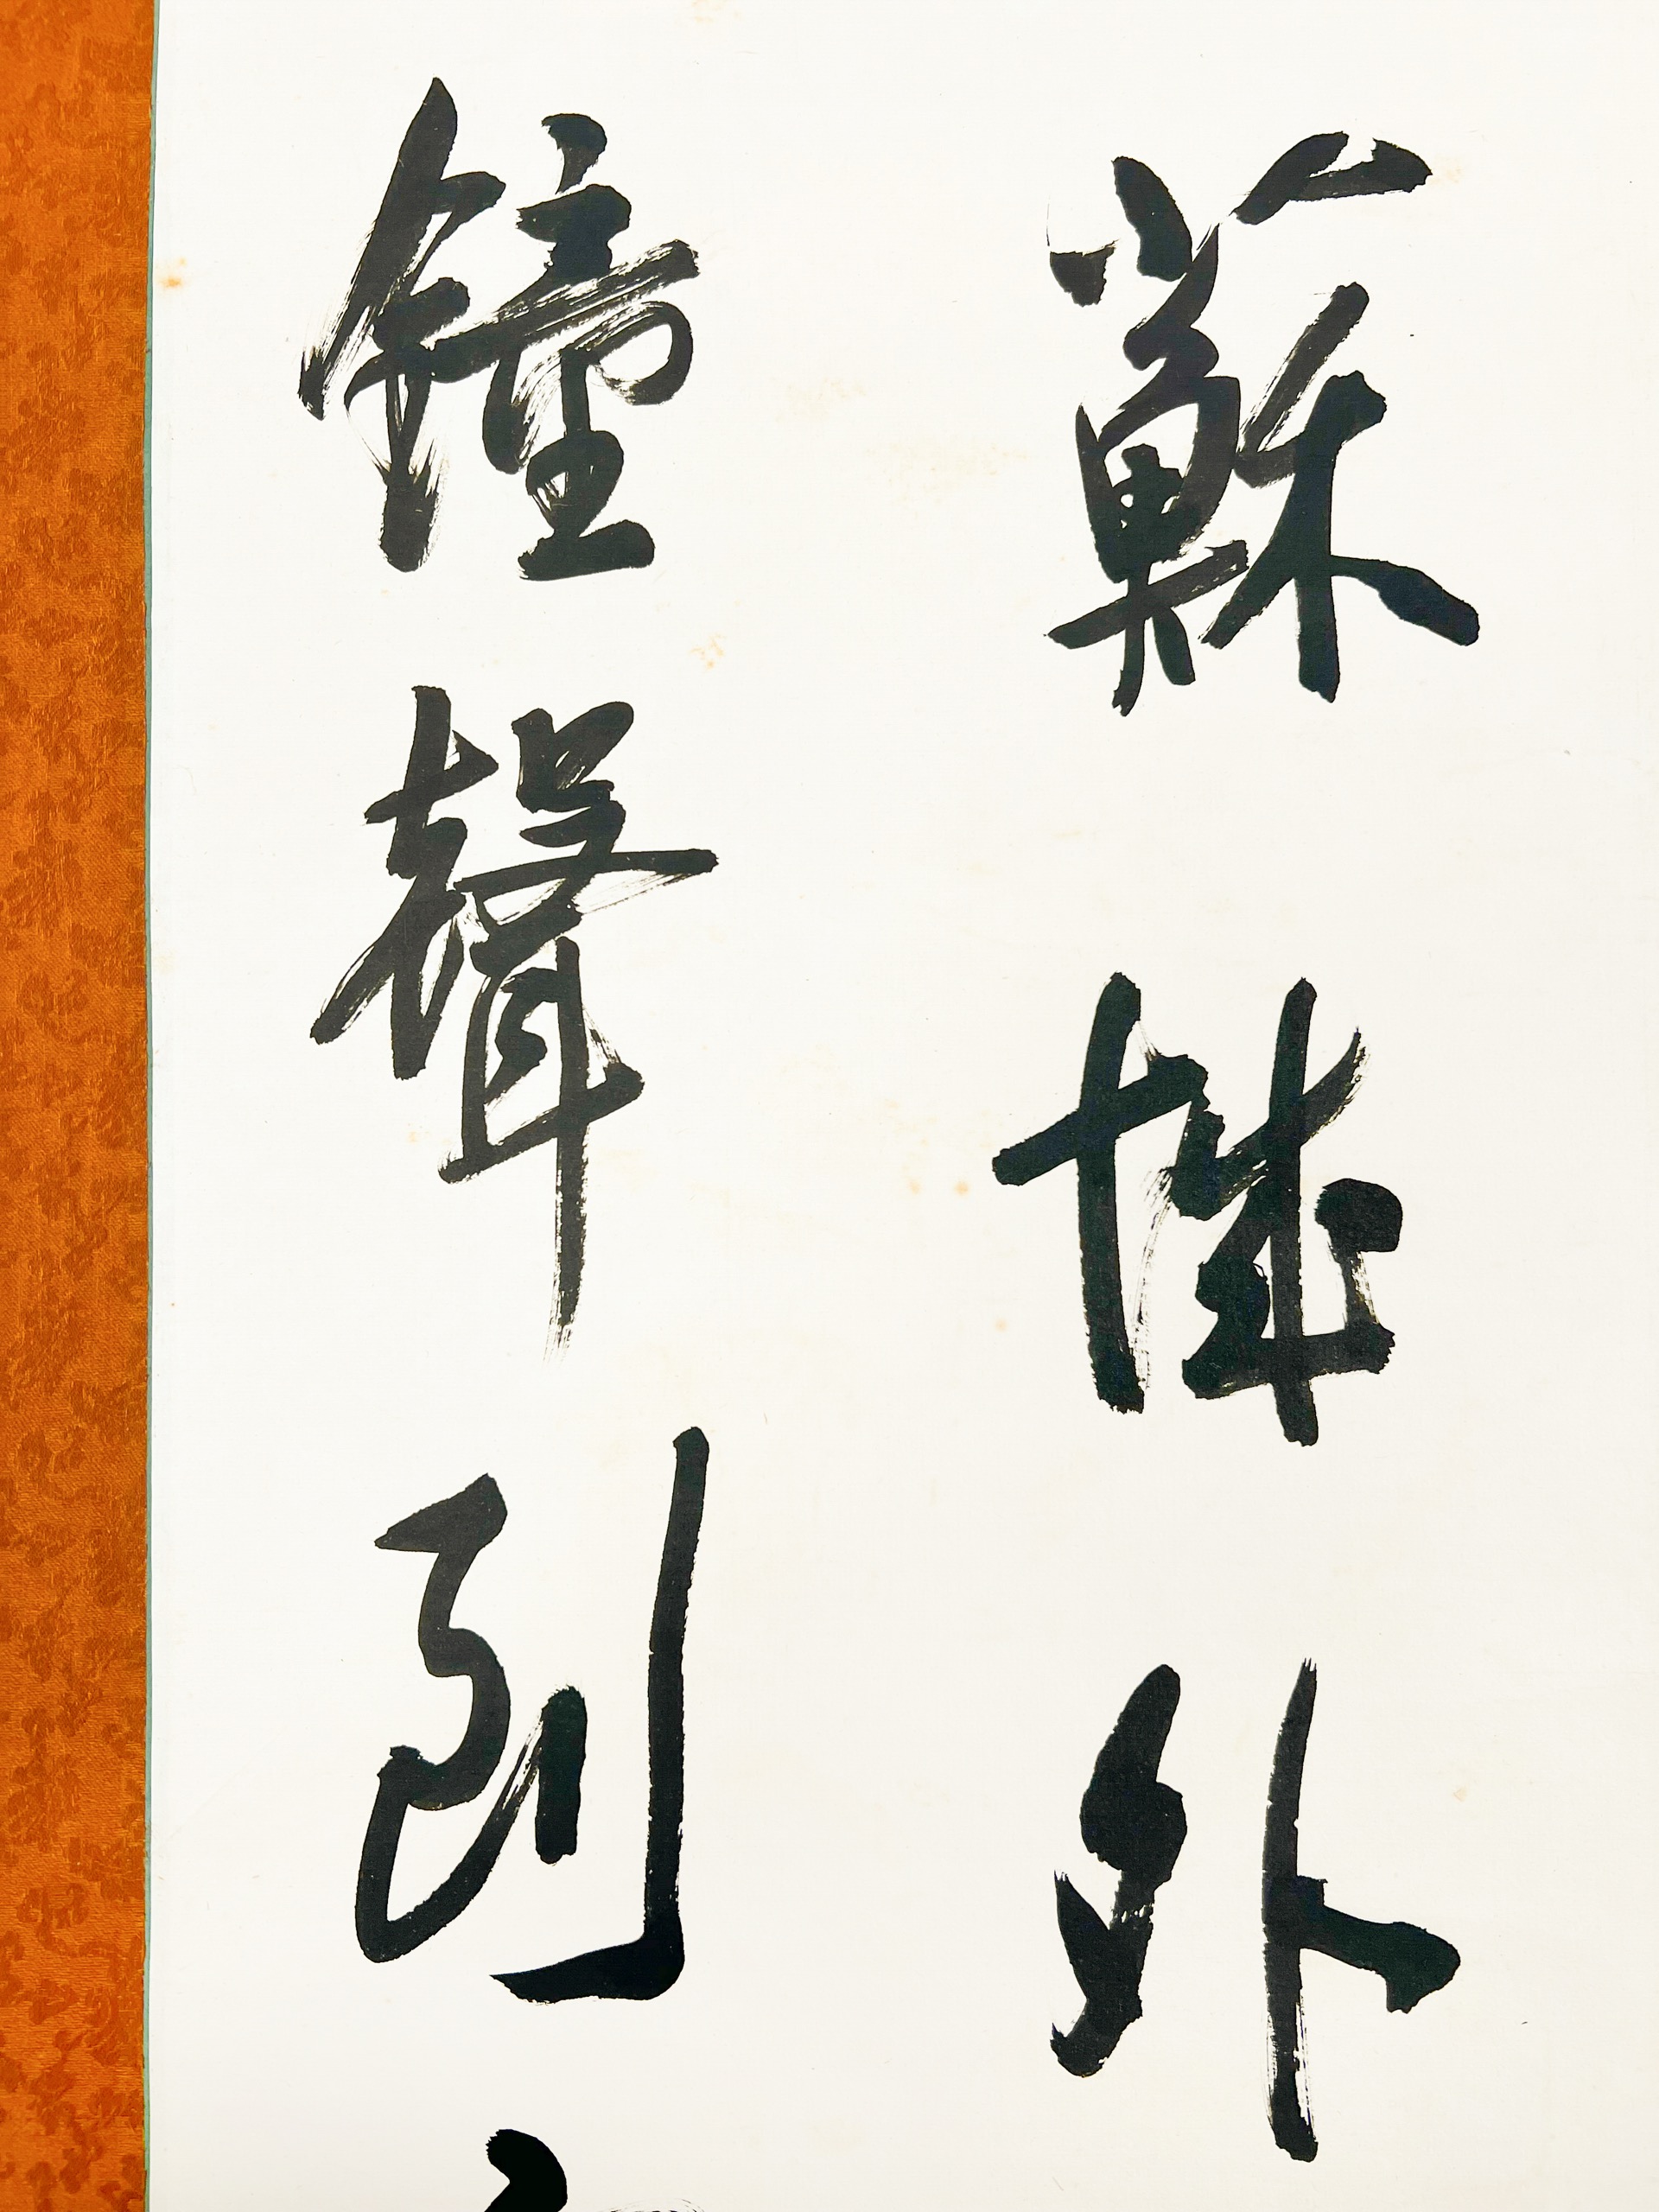 蘇城外
鐘聲到